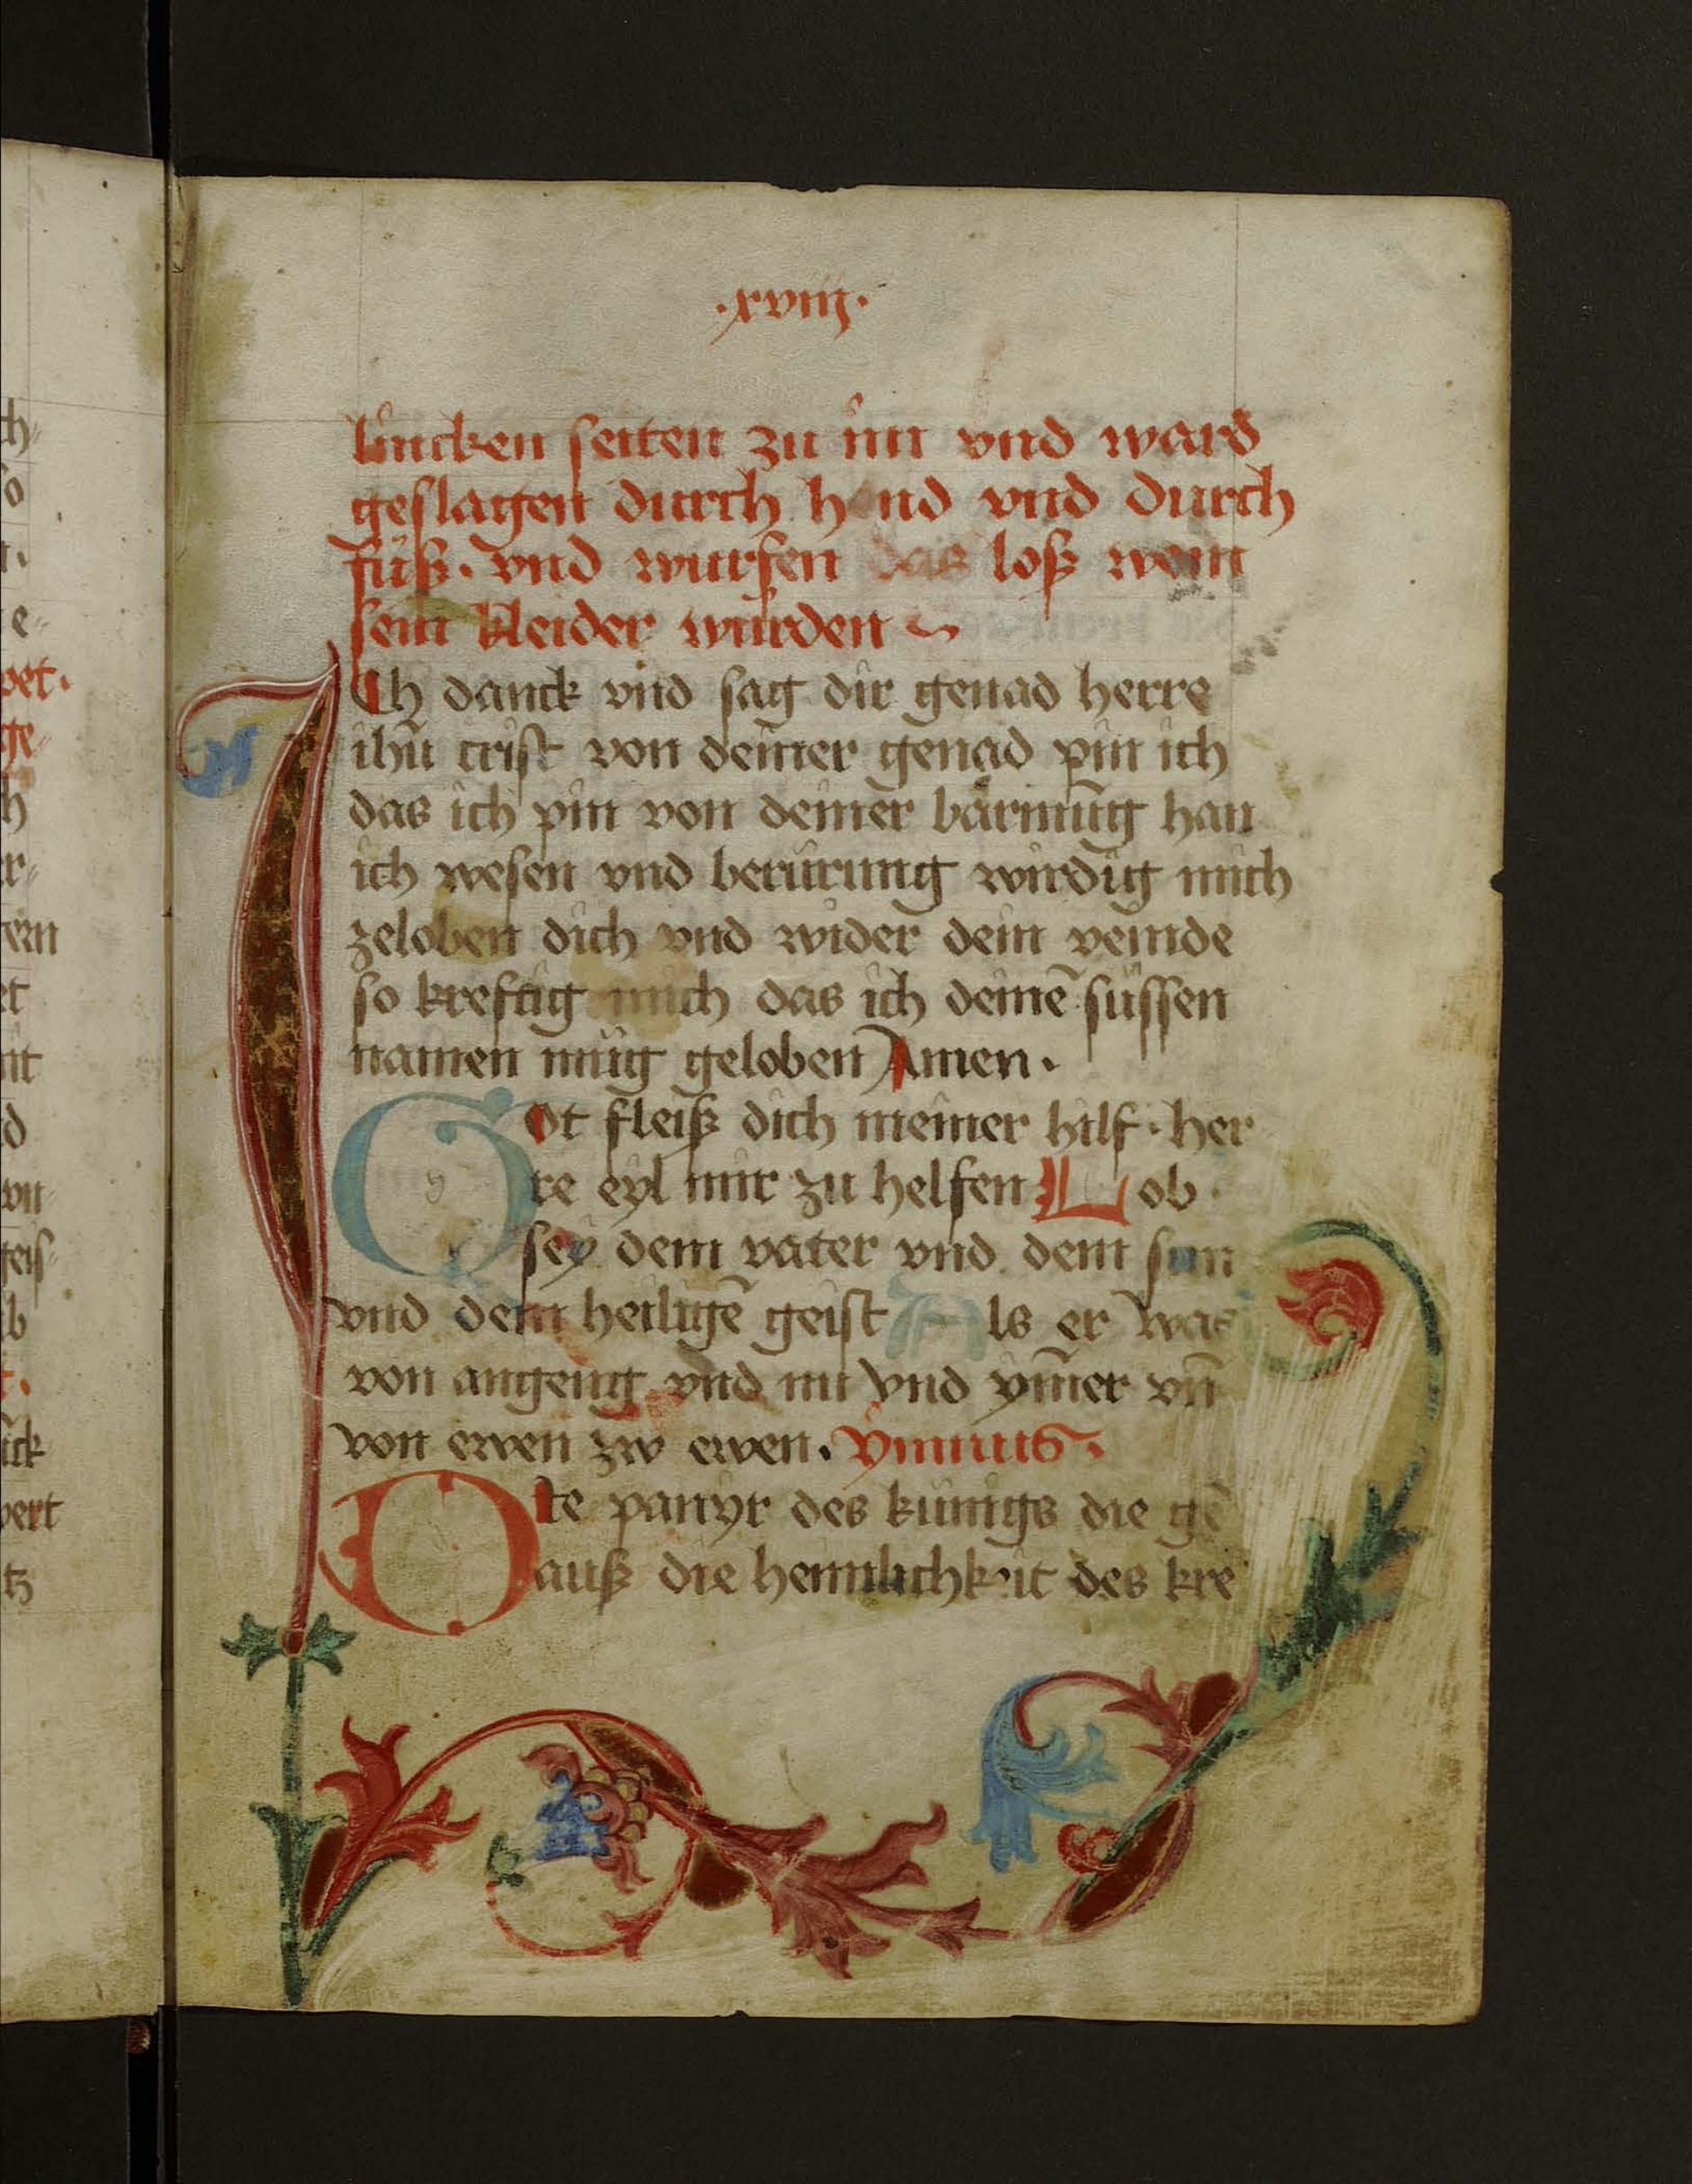 .xviij.
lincken seiten zu im vnd ward
geslagen durch hend vnd durch
füß. vnd wurfen das loß wem
sein kleider wurden
Ich danck vnd sag dir genad herre
ihū crist von deiner genad pin ich
das ich pin von deiner bärmūng han
ich wesen vnd berürung wirdig mich
zeloben dich vnd wider dein veinde
so kreftig mich das ich deinē süssen
namen müg geloben Amen.
Got fleiß dich meiner hilf. her
re eyl mir zu helfen Lob
sey dem vater vnd dem sun
vnd dem heiligē geist Als er was
von angeng vnd nu vnd ym̄er vn̄
von ewen zw ewen. Ymnus.
Die panyr des künigs die gē
auß die heimlichkeit des kre